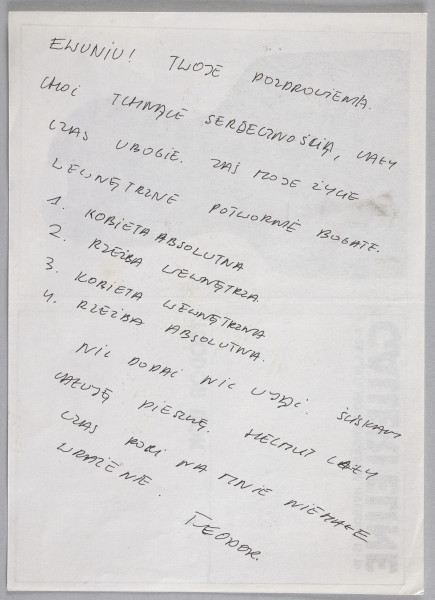 EWUNIU! TWOJE POZDROWIENIA.
CHOĆ TCHNĄCE SERDECZNOŚCIĄ, CAŁY
CZAS UBOGIE. ZAŚ MOJE ŻYCIE
WEWNĘTRZNE POTWORNIE BOGATE.
1. KOBIETA ABSOLUTNA
2. RZEŹBA WEWNĘTRZA.
3. KOBIETA WEWNĘTRZNA
4. RZEŹBA ABSOLUTNA.
NIC DODAĆ NIC UJĄĆ. ŚCISKAM
CAŁUJĘ PIESZCZĘ. HELMUT CAŁY
CZAS ROBI NA MNIE NIEMAŁE
WRAŻENIE.
TEODOR.